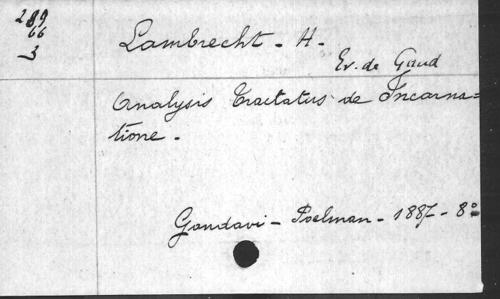 289
66
3
Lambrecht - H.
Ev. de Gand
Analysis Tractatus de Incarna=
tione.
Gandavi - Poelman - 1887 - 8°